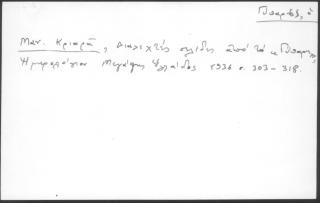 Μπαρές, ὁ
Μαν. Κριαρᾶ, Διαλεχτὲς σελίδες ἀπὸ τὸ "Μπαρές"
Ἡμερολόγιον Μεγάλης Ἑλλάδος 1936 σ. 303-318.